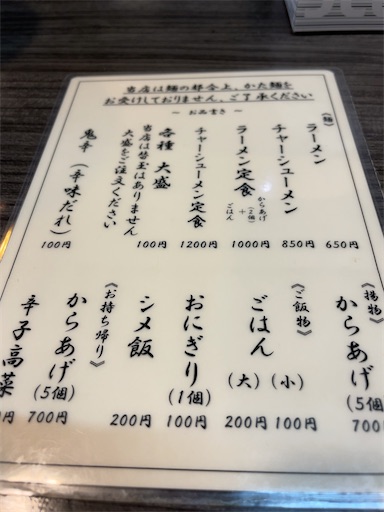 当店は麺の都合上、かた麺を
お受けしておりません、ご了承ください
～ お品書き ～
《麺》
ラーメン 650円
チャーシューメン 850円
ラーメン定食 からあげ(2個)+ごはん 1000円
チャーシューメン定食 1200円
各種 大盛 100円
当店は替玉はありません
大盛をご注文ください
鬼辛 (辛味だれ) 100円
《揚物》
からあげ (5個) 700
《ご飯物》
ごはん (小) 100円
(大) 200円
おにぎり (1個) 100円
シメ飯 200円
《お持ち帰り》
からあげ (5個) 700円
辛子高菜